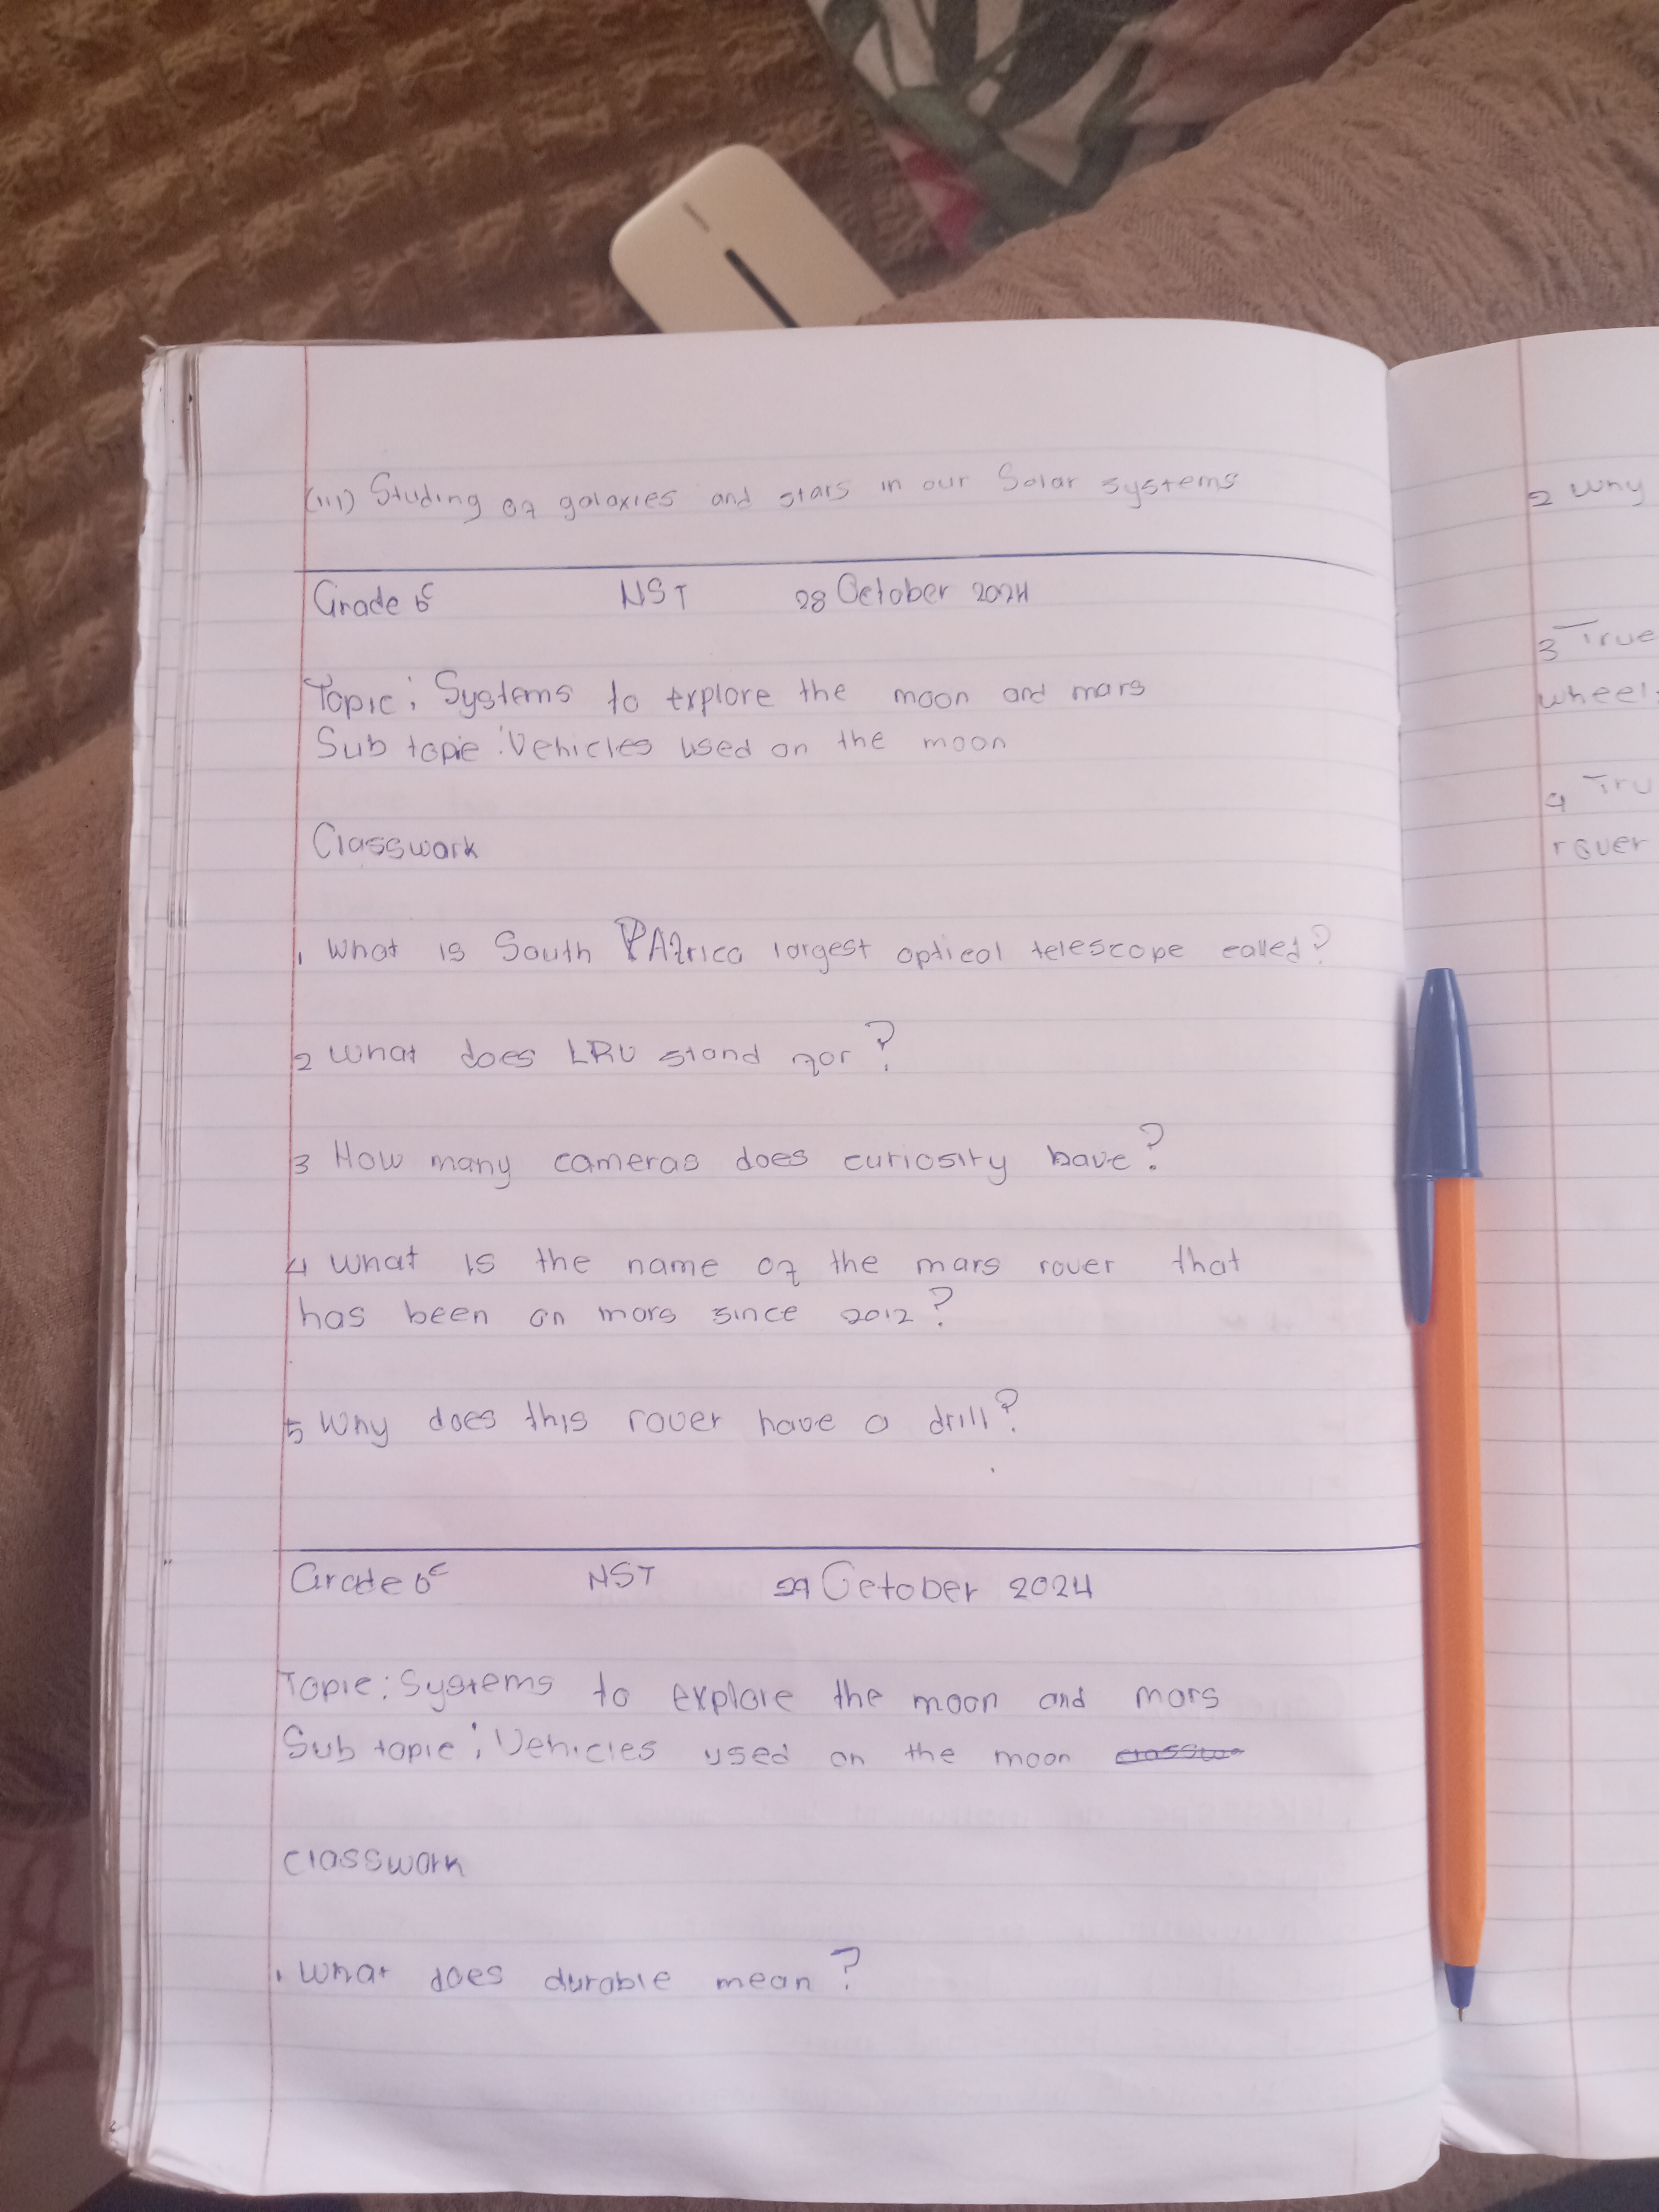 (iii) Studing of galaxies and stars in our Solar systems
Grade 6c NST 28 October 2024
Topic: Systems to explore the moon and mars
Sub topic: Vehicles used on the moon
Classwork
1 What is South Africa largest optical telescope called?
2 What does LRV stand for?
3 How many cameras does curiosity have?
4 What is the name of the mars rover that
has been on mars since 2012?
5 Why does this rover have a drill?
Grade 6c NST 29 October 2024
Topic: Systems to explore the moon and mars
Sub topic: Vehicles used on the moon
classwork
1 What does durable mean?
2 Why
3 True
wheel
4 Tru
rover